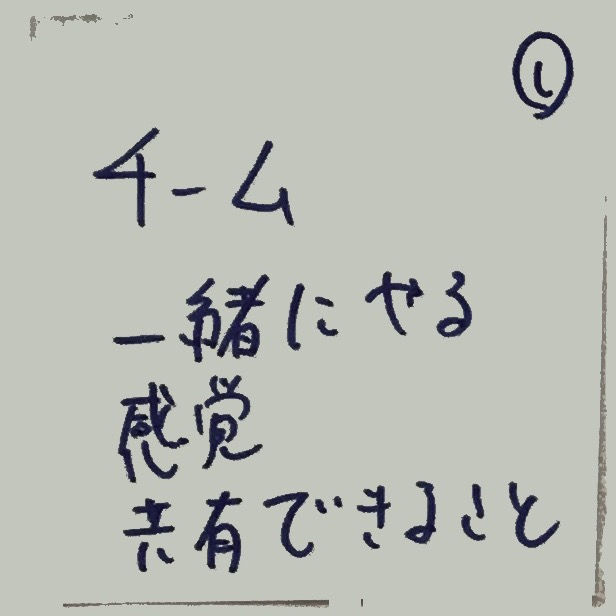 し
チーム
一緒にやる
感覚
共有できること